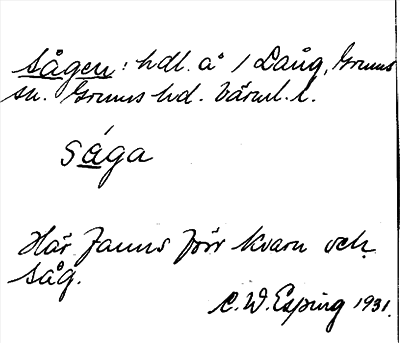 Sågen: hdl. å 1 Lång, Grums
sn. Grums hd. Värml. l.
Sága
Här fanns förr kvarn och
såg.
C. W. Esping 1931.